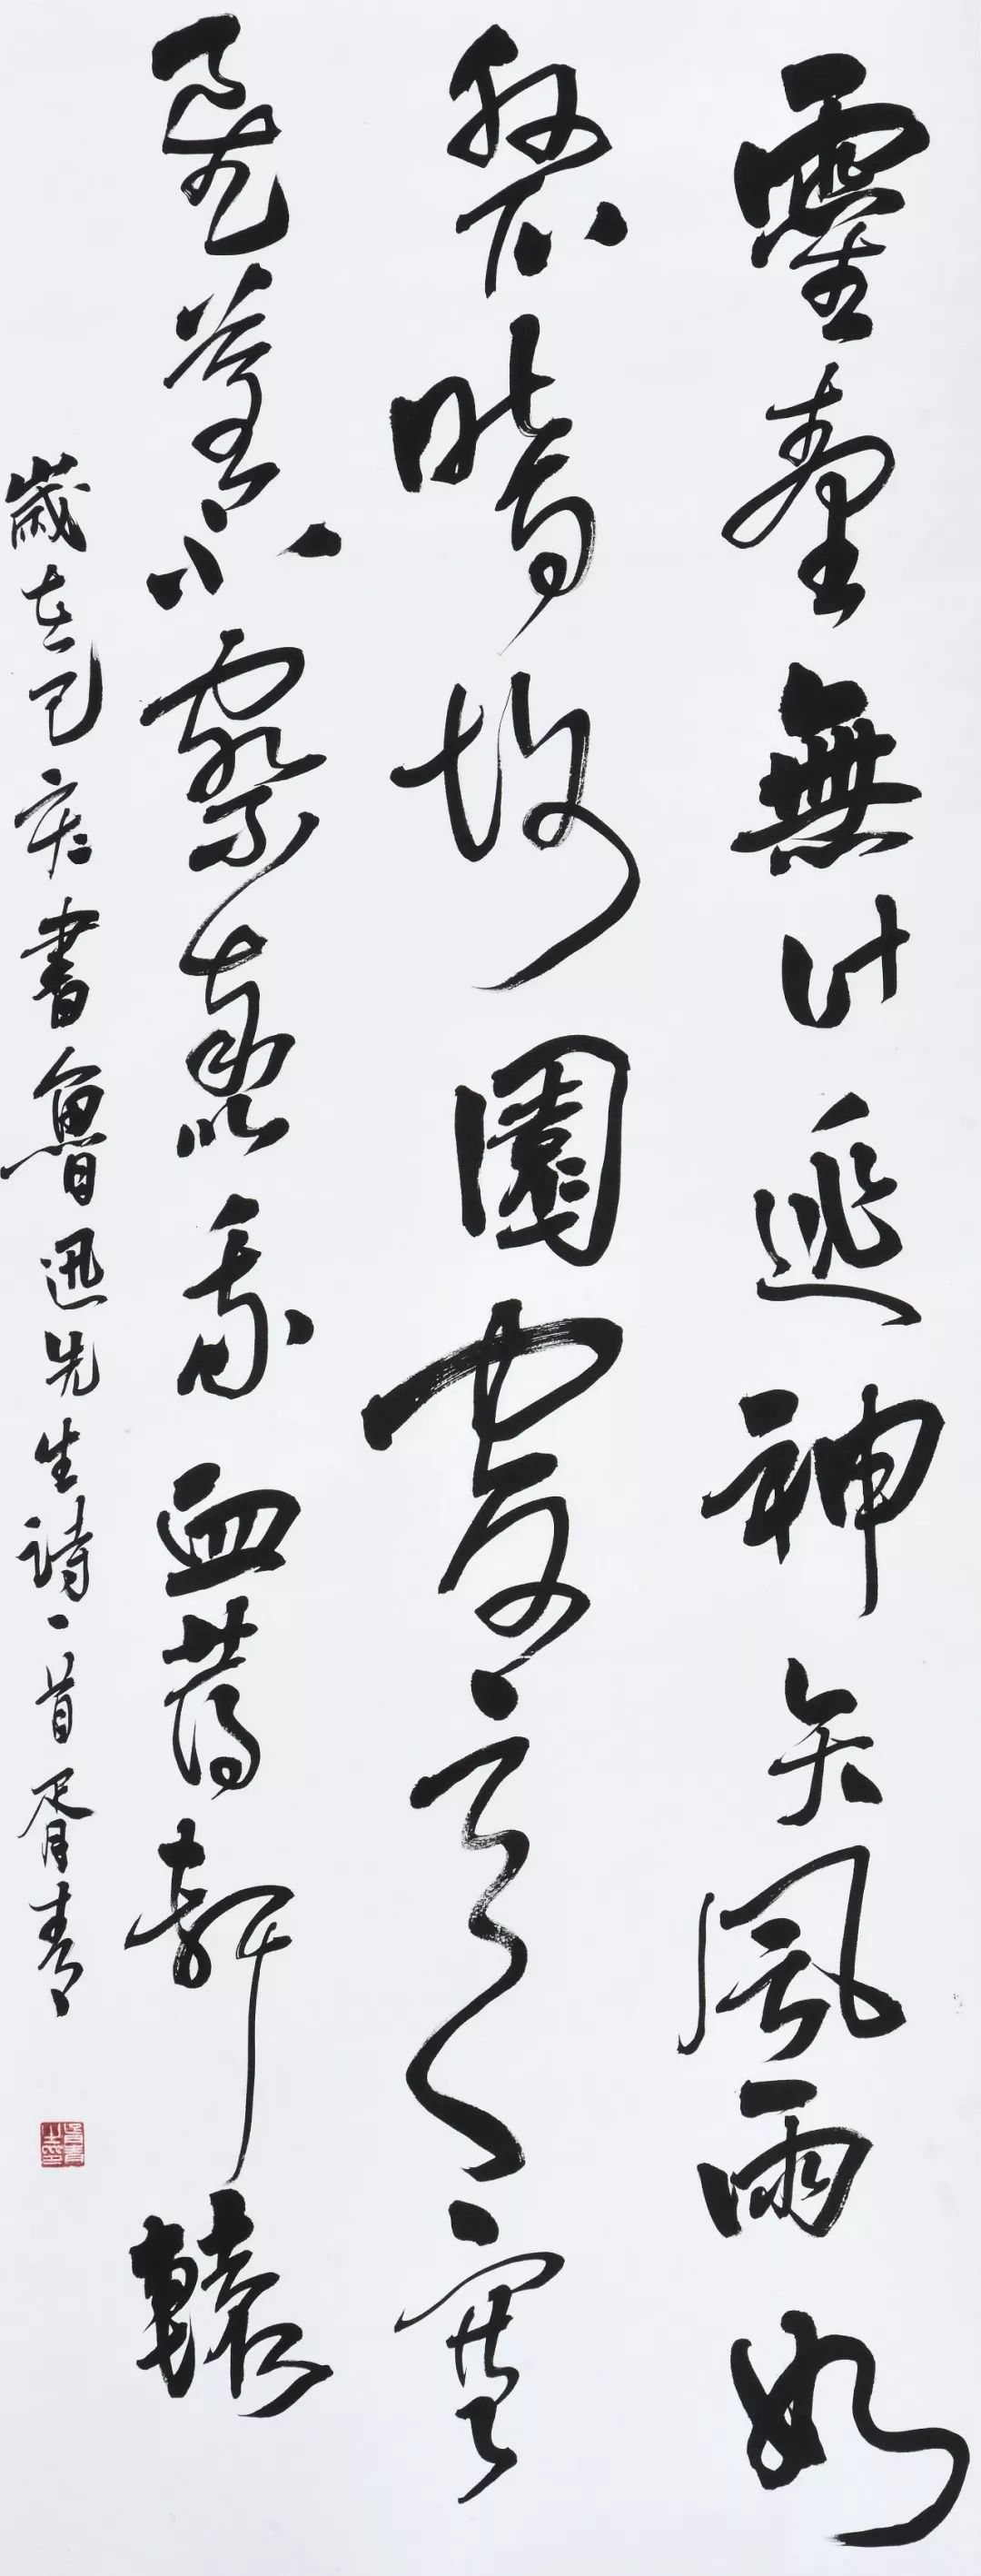 靈臺無計逃神矢風雨如
磐暗故園寄意寒
星荃不察我以我血薦軒轅
歲在己亥書魯迅先生詩一首胥青
胥青之印